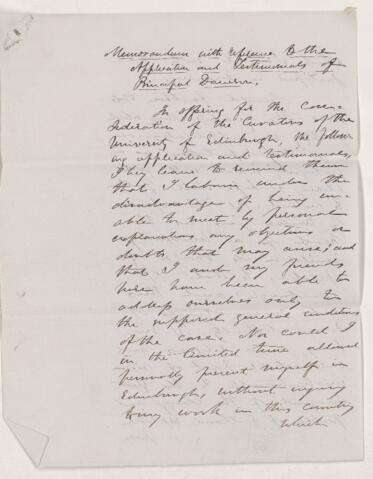 Memorandum with reference to the
Application and Testimonials of
Principal Dawson.
In offering for the consi-
deration of the Curators of the
University of Edinburgh, the follow
ing application and testimonials,
I beg leave to remind them
that I labour under the
disadvantage of being un-
able to meet by personal
explanations any objections or
doubts that may arise; and
that I and my friends
here have been able to
address ourselves only to
the supposed general conditions
of the case. Nor could I
in the limited time allowed
personally present myself in
Edinburgh, without injury
to my work in this country
which